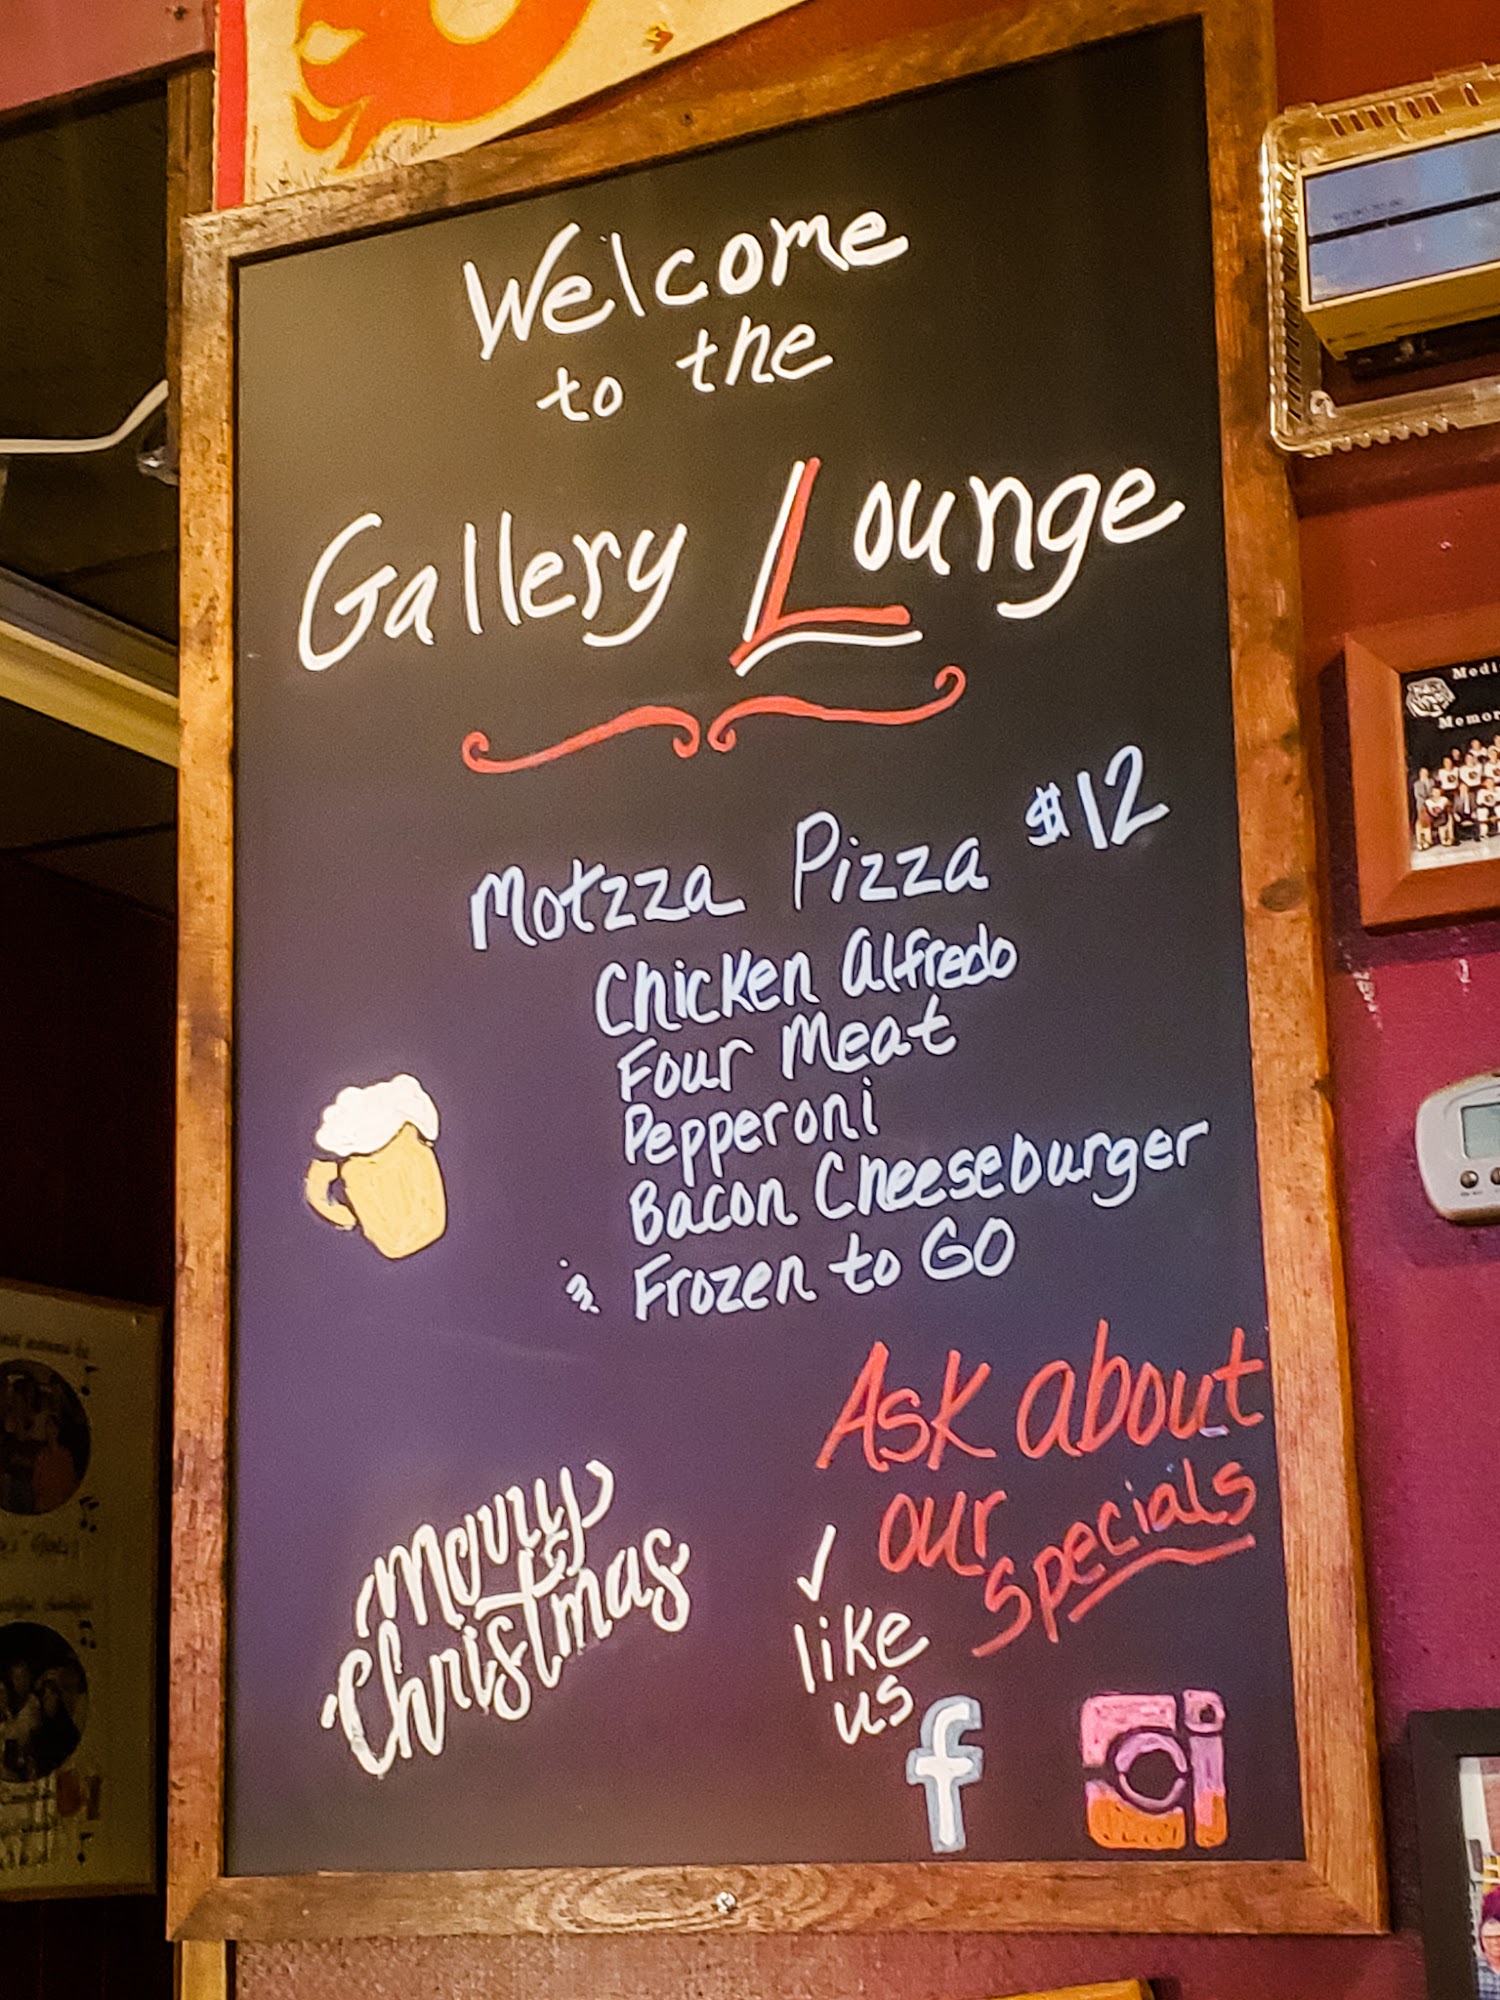 Welcome
to the
Gallery Lounge
Motzza Pizza $12
Chicken Alfredo
Four Meat
Pepperoni
Bacon Cheeseburger
& Frozen to GO
Ask about
our
Specials
Merry
Christmas
✓
like
us
f
Medi
Memor